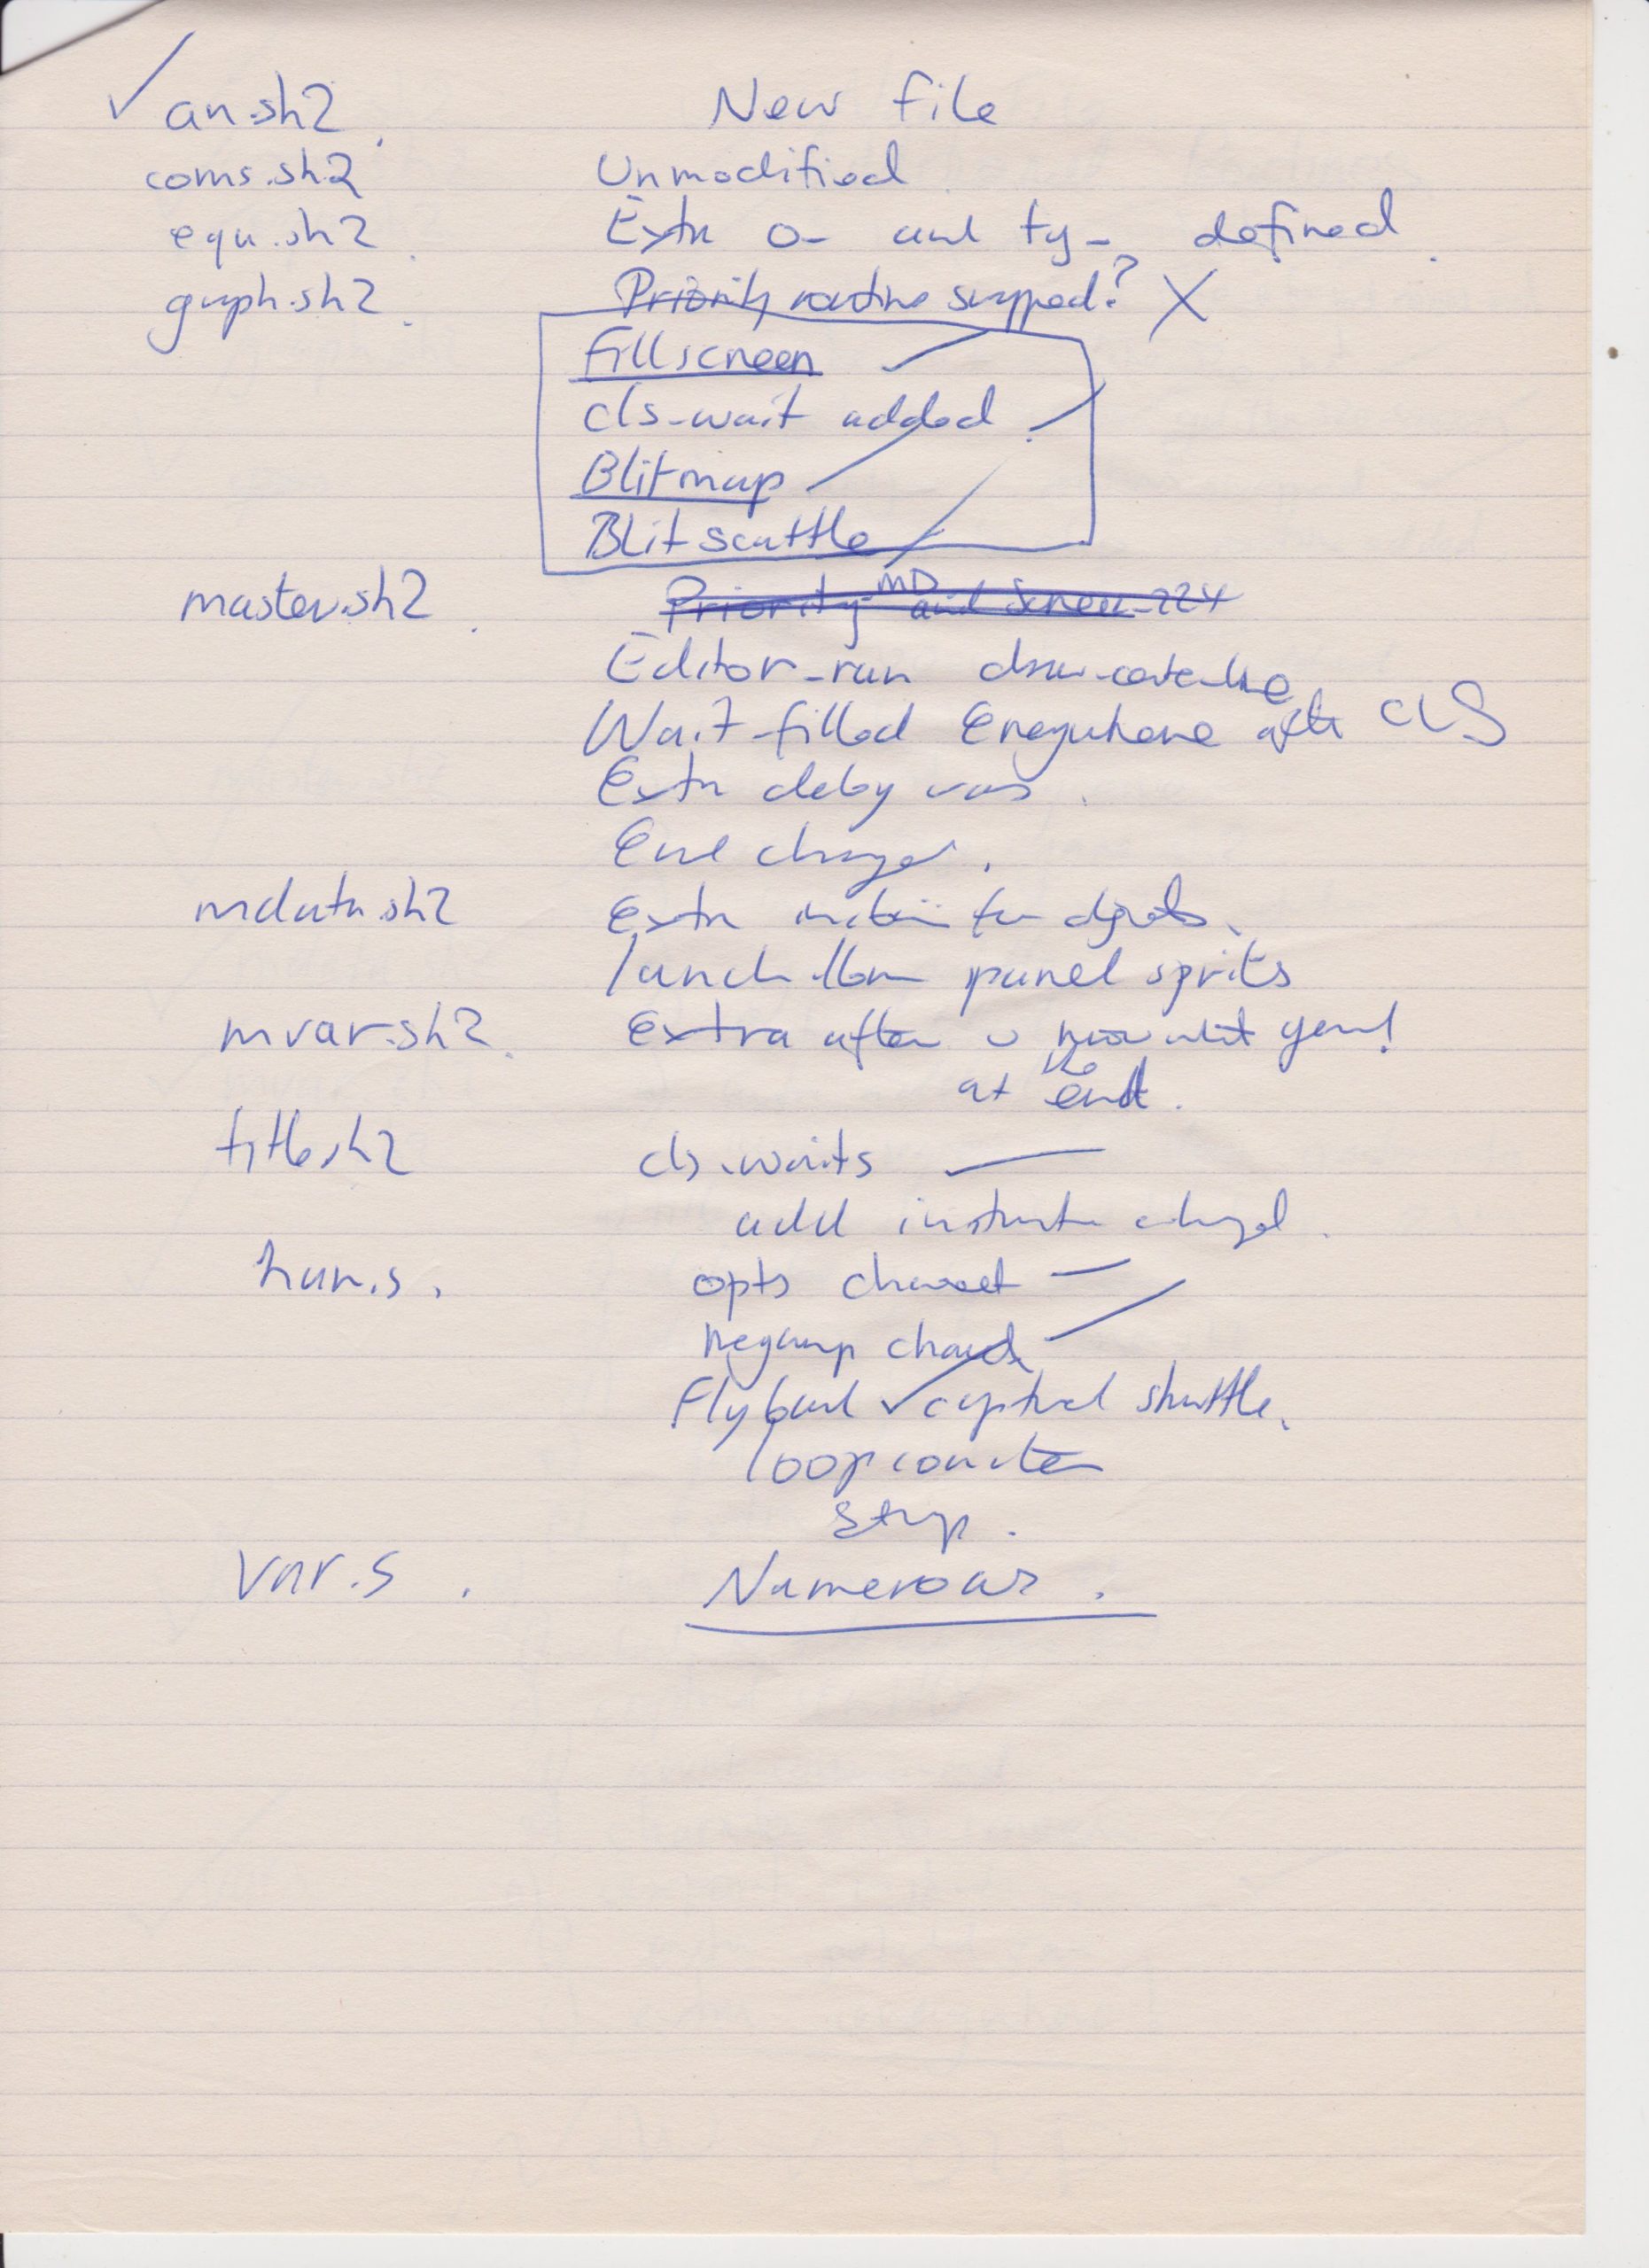 ✓ an.sh2 New file
coms.sh2 Unmodified
equ.sh2 Extra o- and ty- defined.
graph.sh2 Priority routine swapped? X
Fillscreen
cls-wait added
Blitmap
Blitscuttle
master.sh2 Priority-MD and Screen-224
Editor-run
Wait-filled after CLS
Extra delay vars.
End changed.
mdata.sh2 Extra for digits.
panel sprits
mvar.sh2. Extra after
at the end.
title.sh2 cls.waits
add changed.
hun.s. opts
chand
Flyband ✓ captured shuttle.
loopcounter
Strip.
var.s. Numerous.